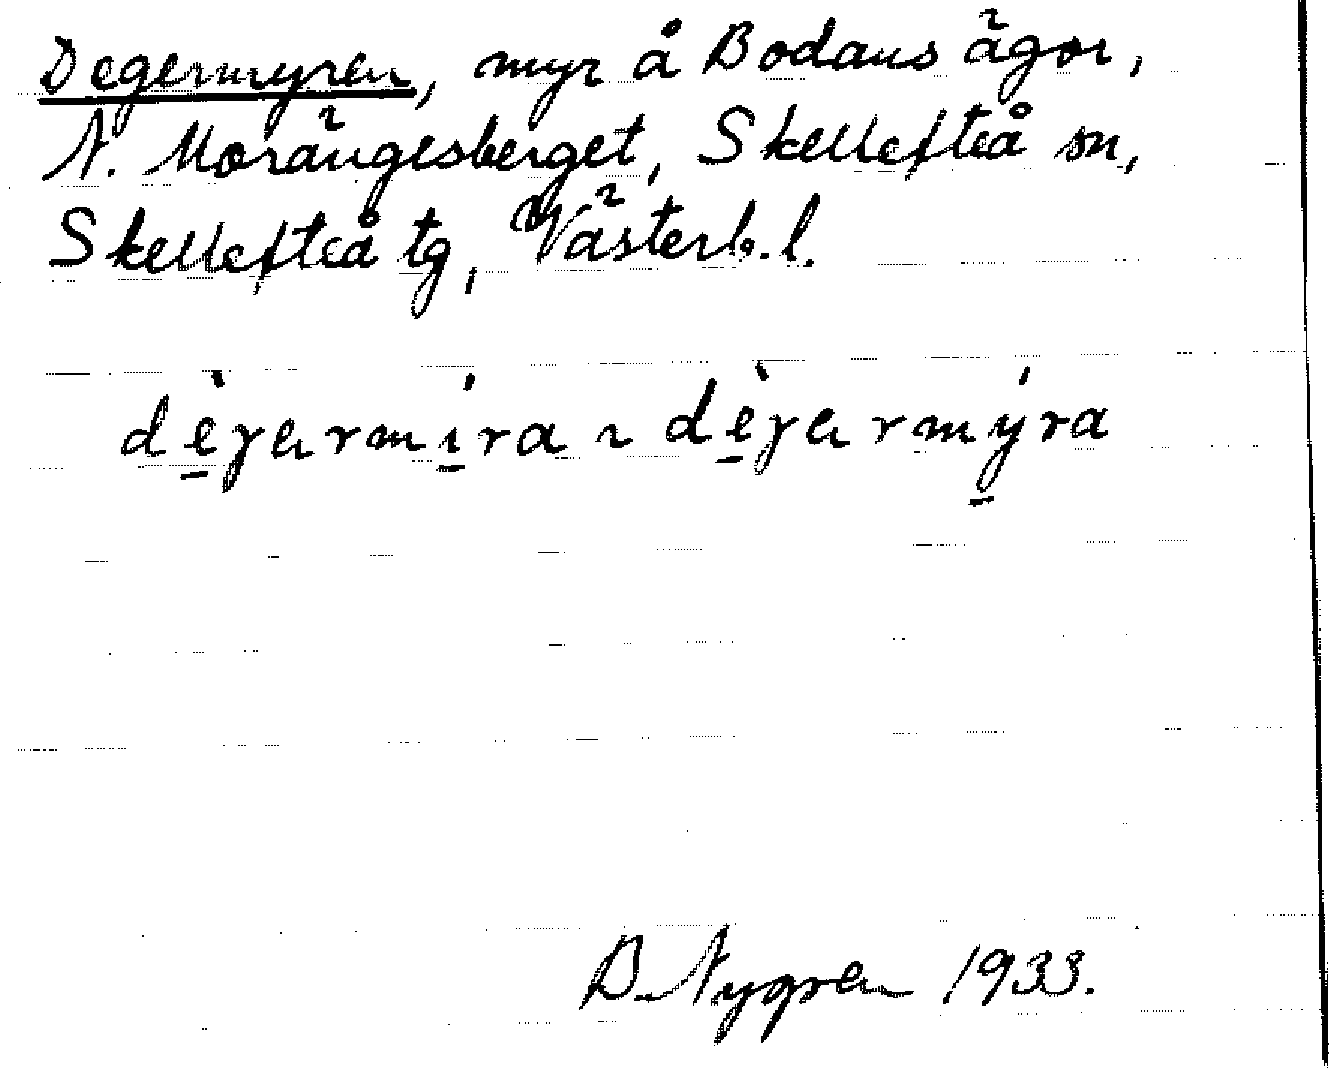 Degermyren, myr å Bodans ägor,
N. Morängesberget, Skellefteå sn,
Skellefteå tg, Västerb. l.
dè̠ɣərmí̠ra ~ dè̠ɣərmý̠ra
B. Nygren 1933.